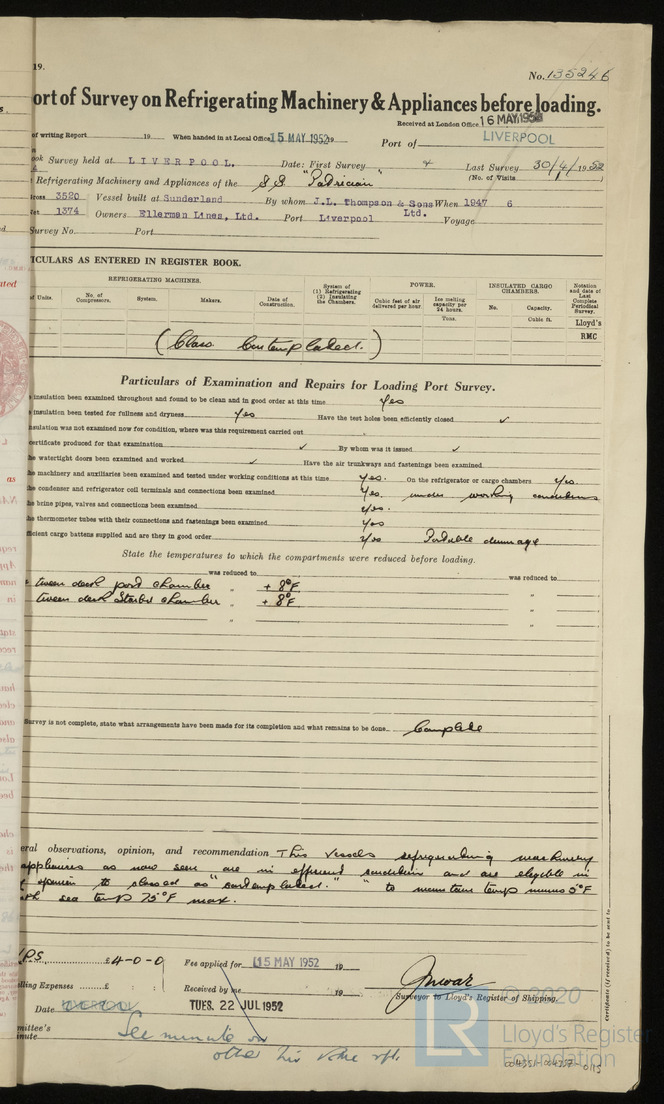 19.
No. 135246
ort of Survey on Refrigerating Machinery & Appliances before loading.
Received at London Office 16 MAY 1952
of writing Report 19 When handed in at Local Office 15 MAY 1952 19 Port of LIVERPOOL
Survey held at LIVERPOOL. Date: First Survey 4 Last Survey 30/4/1952
(No. of Visits )
Refrigerating Machinery and Appliances of the S.S. "Patrician"
ross 3520 Vessel built at Sunderland By whom J.L. Thompson & Sons Ltd. When 1947 6
et 1374 Owners Ellerman Lines, Ltd. Port Liverpool Voyage
Survey No. Port
ICULARS AS ENTERED IN REGISTER BOOK.
REFRIGERATING MACHINES. System of (1) Refrigerating (2) Insulating the Chambers. POWER. INSULATED CARGO CHAMBERS. Notation and date of Last Complete Periodical Survey.
of Units. No. of Compressors. System. Makers. Date of Construction. Cubic feet of air delivered per hour. Ice melting capacity per 24 hours. No. Capacity.
Tons. Cubic ft. Lloyd's
RMC
(Class Contemplated.)
Particulars of Examination and Repairs for Loading Port Survey.
e insulation been examined throughout and found to be clean and in good order at this time Yes
e insulation been tested for fullness and dryness Yes Have the test holes been efficiently closed ✓
nsulation was not examined now for condition, where was this requirement carried out
certificate produced for that examination ✓ By whom was it issued ✓
he watertight doors been examined and worked ✓ Have the air trunkways and fastenings been examined
he machinery and auxiliaries been examined and tested under working conditions at this time Yes. On the refrigerator or cargo chambers Yes.
he condenser and refrigerator coil terminals and connections been examined Yes, under working conditions
he brine pipes, valves and connections been examined Yes.
he thermometer tubes with their connections and fastenings been examined Yes
ficient cargo battens supplied and are they in good order Yes Portable dunnage
State the temperatures to which the compartments were reduced before loading.
was reduced to was reduced to
tween deck port chamber " + 8°F "
tween deck Starbd chamber " + 8°F "
" "
Survey is not complete, state what arrangements have been made for its completion and what remains to be done Complete
eral observations, opinion, and recommendation This vessels refrigerating machinery
appliances as now seen are in efficient condition and are eligible in
opinion to classed as "contemplated." " to maintain temp minus 5°F
sea temp 75°F max.
£4-0-0 Fee applied for 15 MAY 1952 19
lling Expenses £ : : Received by me 19
Surveyor to Lloyd's Register of Shipping.
Date LIVERPOOL TUES. 22 JUL 1952
mittee's
inute
See minute on
other
Certificate (if received) to be sent to
© 2020
LR
Lloyd's Register
Foundation
004351-004357-0115